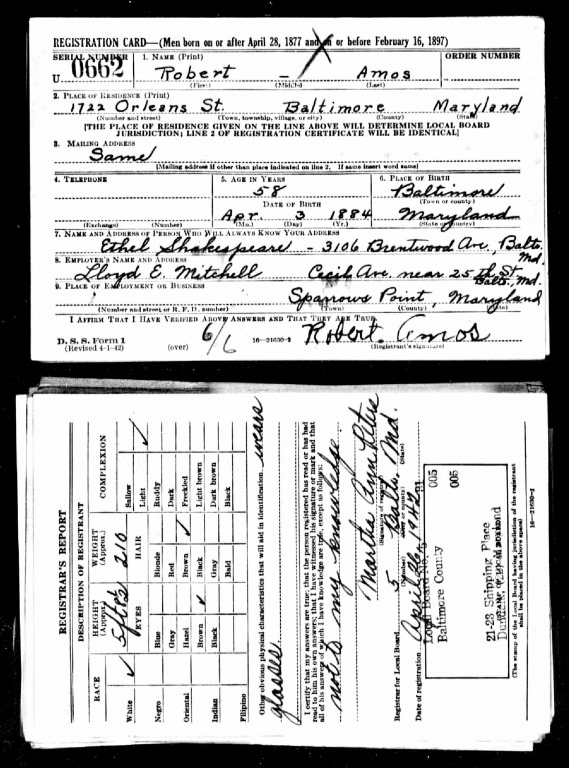 REGISTRATION CARD—(Men born on or after April 28, 1877 and on or before February 16, 1897)
SERIAL NUMBER 1. NAME (Print) ORDER NUMBER
U 0662 Robert – Amos
(First) (Middle) (Last)
2. PLACE OF RESIDENCE (Print)
1722 Orleans St. Baltimore Maryland
(Number and street) (Town, township, village, or city) (County) (State)
[THE PLACE OF RESIDENCE GIVEN ON THE LINE ABOVE WILL DETERMINE LOCAL BOARD
JURISDICTION; LINE 2 OF REGISTRATION CERTIFICATE WILL BE IDENTICAL]
3. MAILING ADDRESS
Same
[Mailing address if other than place indicated on line 2. If same insert word same]
4. TELEPHONE 5. AGE IN YEARS 6. PLACE OF BIRTH
58 Baltimore
DATE OF BIRTH (Town or county)
Apr 3 1884 Maryland
(Exchange) (Number) (Mo.) (Day) (Yr.) (State or country)
7. NAME AND ADDRESS OF PERSON WHO WILL ALWAYS KNOW YOUR ADDRESS
Ethel Shakespeare – 3106 Brentwood Ave, Balto. Md.
8. EMPLOYER'S NAME AND ADDRESS
Lloyd E. Mitchell Cecil Ave. near 25th St. Balto. Md.
9. PLACE OF EMPLOYMENT OR BUSINESS
Sparrows Point, Maryland
(Number and street or R. F. D. number) (Town) (County) (State)
I AFFIRM THAT I HAVE VERIFIED ABOVE ANSWERS AND THAT THEY ARE TRUE.
D. S. S. Form 1 6/6 Robert. Amos
(Revised 4-1-42) (over) 16—21630-2 (Registrant's signature)
REGISTRAR'S REPORT
DESCRIPTION OF REGISTRANT
RACE HEIGHT (Approx.) WEIGHT (Approx.) COMPLEXION
5 ft 2 210
EYES HAIR
White ✓ Blue Blonde Sallow
Light ✓
Negro Gray Red Ruddy
Oriental Hazel Brown ✓ Dark
Freckled
Brown ✓ Black Light brown
Indian Black Gray Dark brown
Filipino Bald Black
Other obvious physical characteristics that will aid in identification. wears
glasses.
I certify that my answers are true; that the person registered has read or has had
read to him his own answers; that I have witnessed his signature or mark and that
all of his answers of which I have knowledge are true, except as follows:
not to my knowledge
Martha Ann
(Signature of registrar)
Registrar for Local Board 5 Balto. Md.
(Number) (City or county) (State)
Date of registration April 26, 1942
Local Board No. 5 005
Baltimore County 005
21-23 Shipping Place
(The stamp of the Local Board having jurisdiction of the registrant
shall be placed in the above space)
16—21630-2